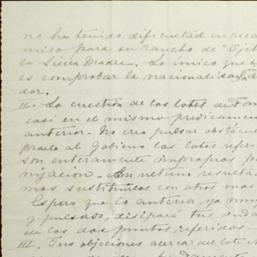 no ha tenido dificultad en reca
miso para su rancho de "Ojit
la Sierra Madre. Lo único que
es comprobar la nacionalidad
dor.
II. La cuestión de los lotes de
casi en el mismo predicamen
anterior. No creo pulsar obstácu
prarlo al Gobierno los lotes refer
son enteramente impropios p
nización. En último resulta
mos sustituirlos con otros mas
Espero que lo anterior, ya mu
y pulsado, disipará tus dud
de los dos puntos referidos.
III. Tus objeciones acerca del